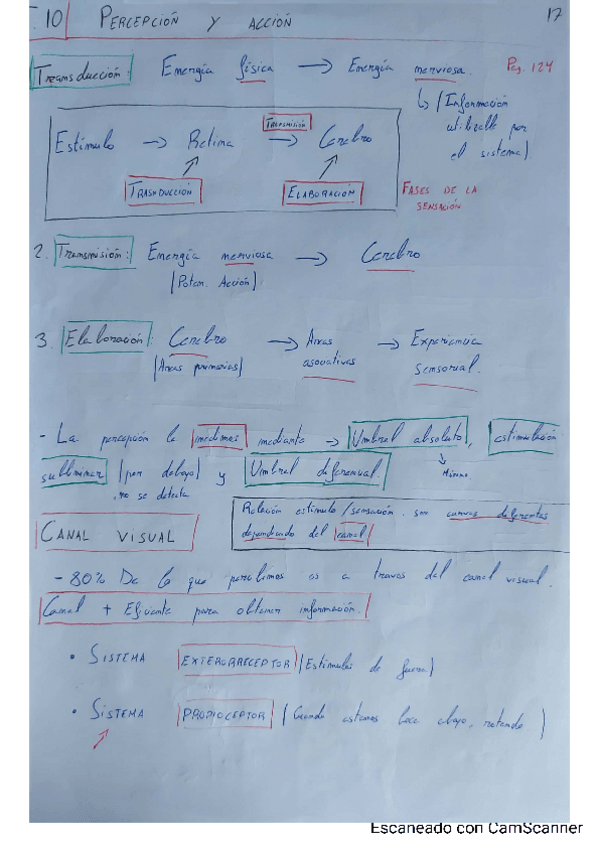 . 10 PERCEPCIÓN Y ACCIÓN 17
Transducción: Energía física → Energía nerviosa. Pag. 124
↳ (Información
utilizable por
el sistema).
Transmisión
Estímulo → Retina → Cerebro
TRASNDUCCIÓN ELABORACIÓN
FASES DE LA
SENSACIÓN
2. Transmisión: Energía nerviosa → Cerebro
(Poten. Acción)
3. Elaboración: Cerebro → Areas → Experiencia
(Areas primarias) asociativas sensorial.
- La percepción la medimos mediante → Umbral absoluto, estimulación
subliminar (por debajo) y Umbral diferencial.
. no se detecta
↓
Mínimo
Relación estímulo/sensación. son curvas diferentes
dependiendo del canal
CANAL VISUAL
- 80% De lo que percibimos es a traves del canal visual.
Canal + Eficiente para obtener información.
• SISTEMA EXTERORRECEPTOR (Estímulos de fuera)
• SISTEMA PROPIOCEPTOR (Cuando estamos boca abajo, )
Escaneado con CamScanner